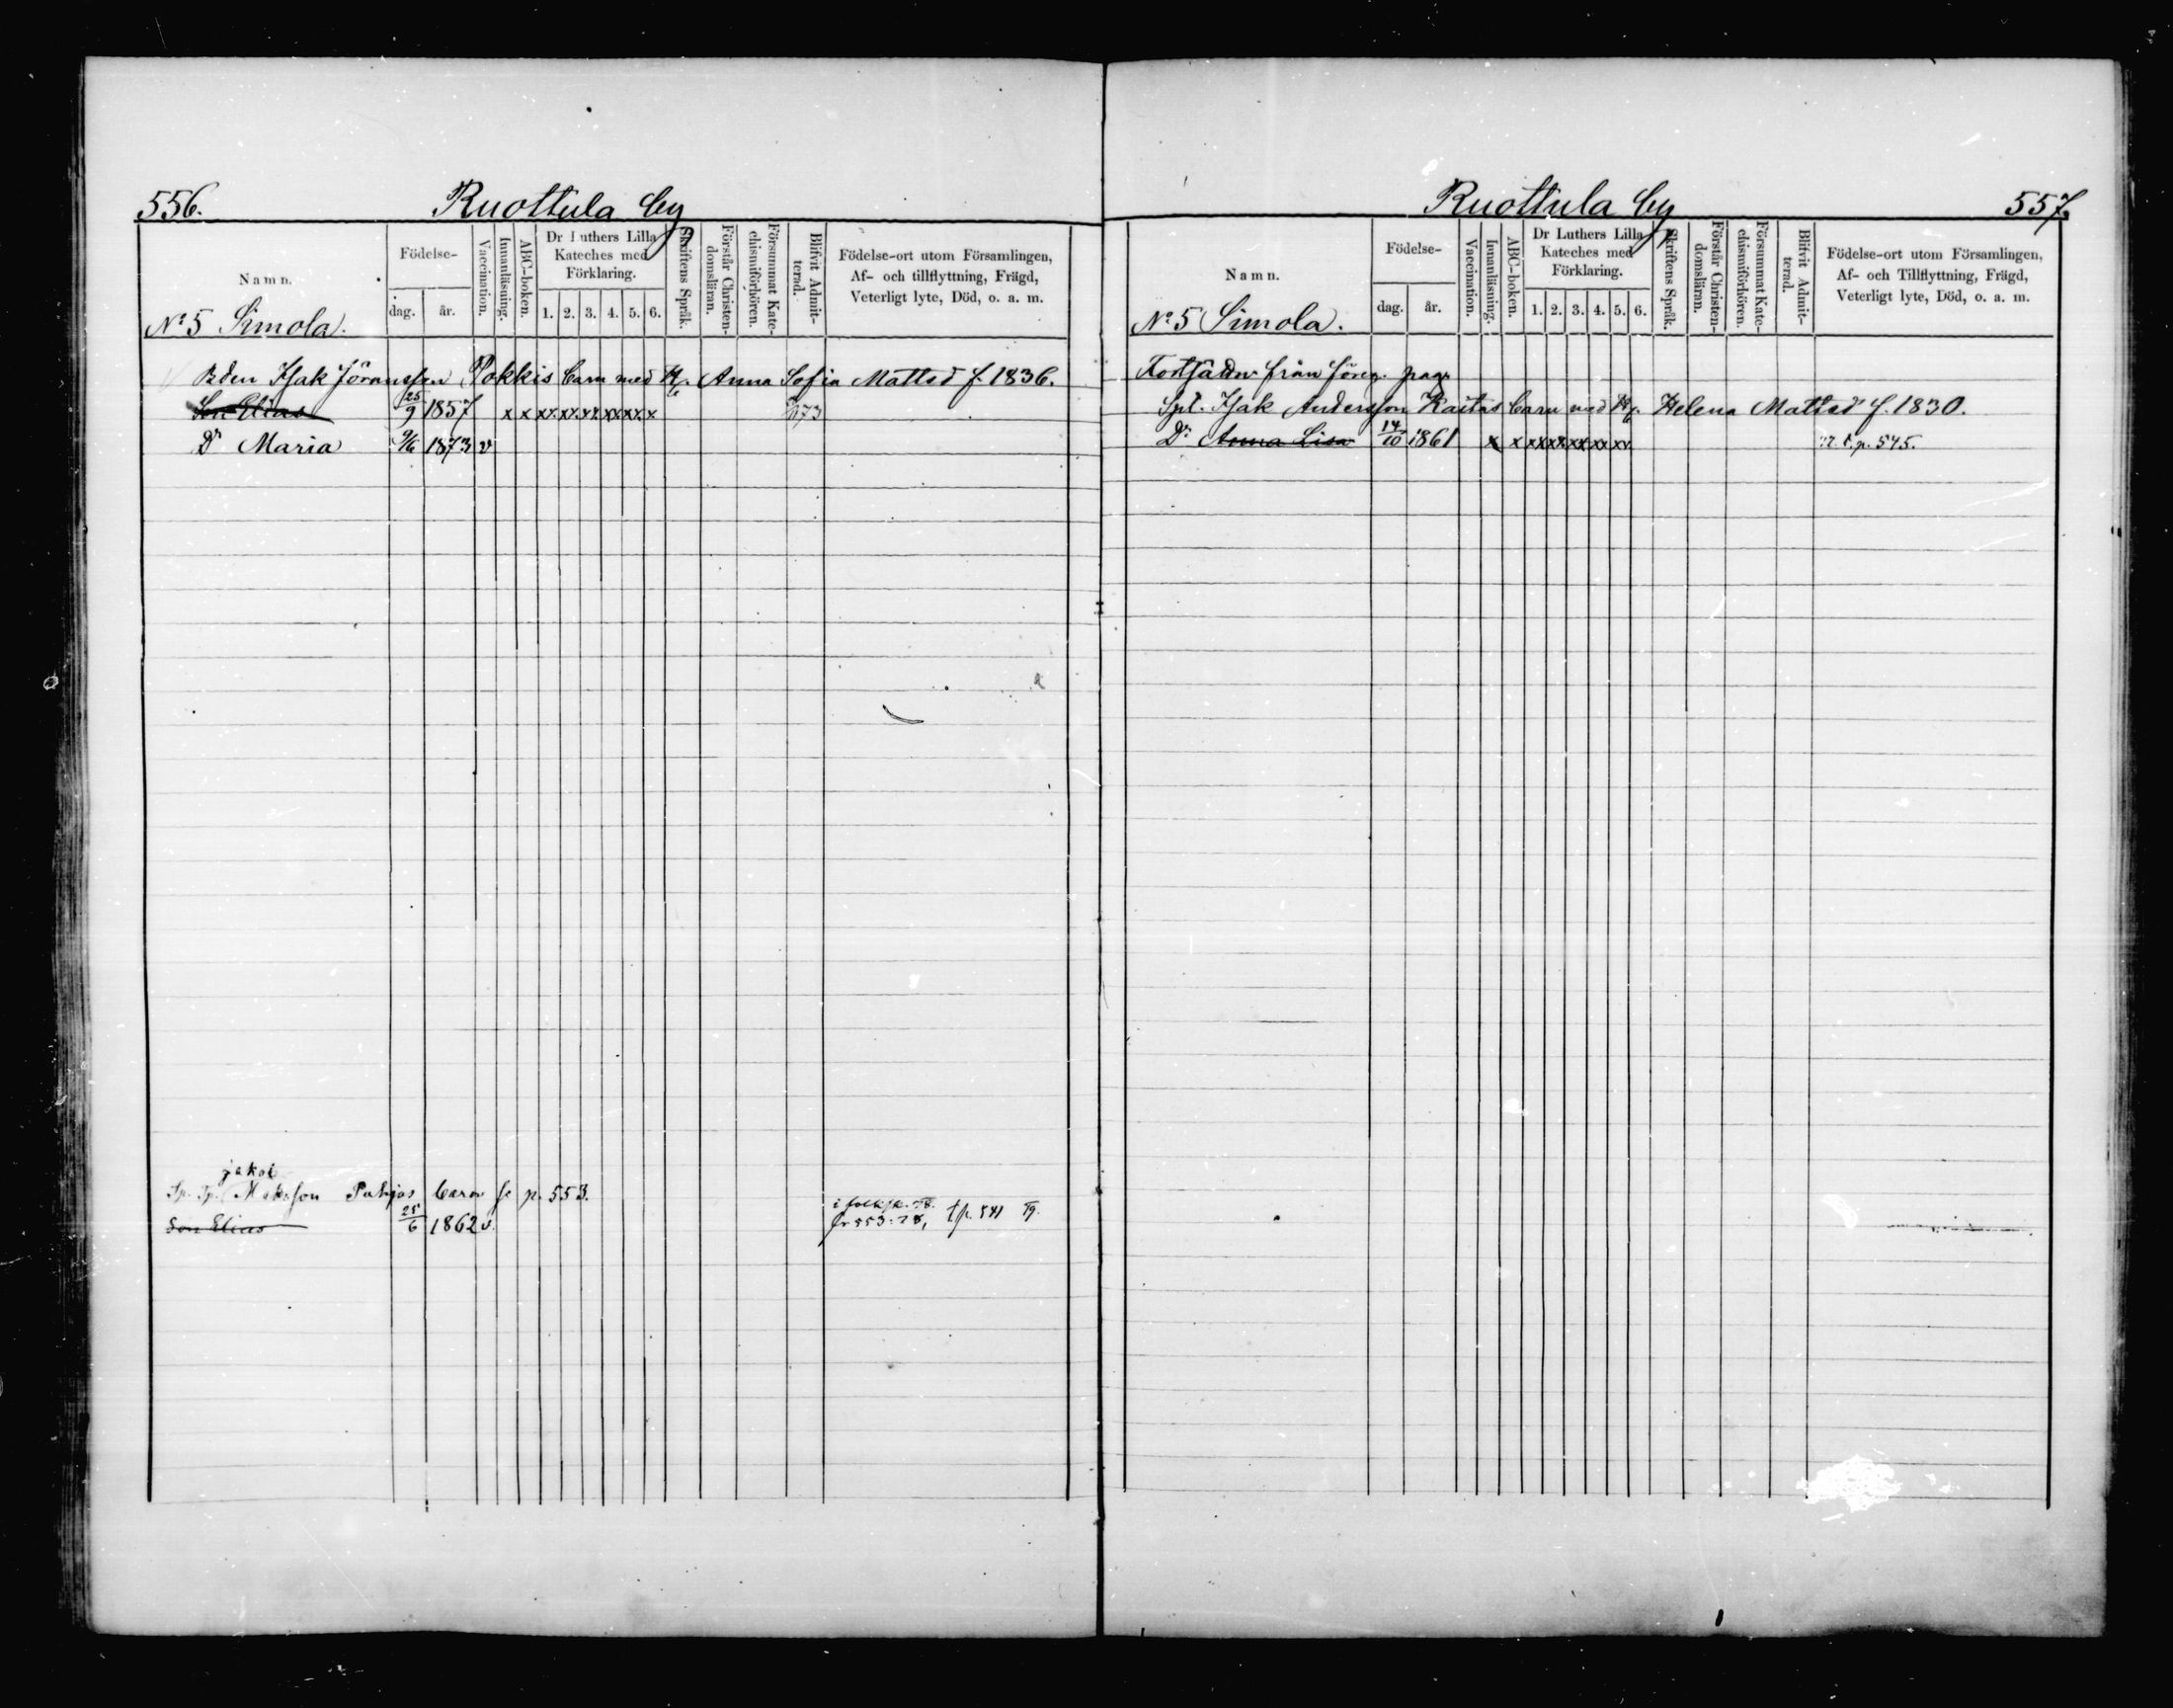 556. Ruottula by
Namn. Födelse- dag. år. Vaccination. Innanläsning. ABC-boken. Dr Luthers Lilla Kateches med Förklaring. 1. 2. 3. 4. 5. 6. Skriftens Språk. Förstår Christen-domsläran. Försummat Kate-chismiförhören. Blifvit Admit-terad. Födelse-ort utom Församlingen, Af- och tillflyttning, Frägd, Veterligt lyte, Död, o. a. m.
No 5 Simola.
Bden Isak Göransson Pokkis barn med H. Anna Sofia Mattsd f. 1836.
Son Elias 25/9 1857 x x xx xx xx xx xx x 73
Dr Maria 9/6 1873 v
jakob
Sp. Sp. Matsson Pahjas barn se p. 553.
Son Elias 25/6 1862 v. i folksk. 78.
fr 553. 78, t p. 541 79.
Ruottula by 557.
Namn. Födelse- dag. år. Vaccination. Innanläsning. ABC-boken. Dr Luthers Lilla Kateches med Förklaring. 1. 2. 3. 4. 5. 6. Skriftens Språk. Förstår Christen-domsläran. Försummat Kate-chismiförhören. Blifvit Admit-terad. Födelse-ort utom Församlingen, Af- och Tillflyttning, Frägd, Veterligt lyte, Död, o. a. m.
No 5 Simola.
Fortsättn. från föreg. pag.
Spt. Isak Andersson Kaitas barn med H. Helena Mattsd f. 1830.
Dr Anna Lisa 14/10 1861 x x xx xx xx xx xx t. p. 545.